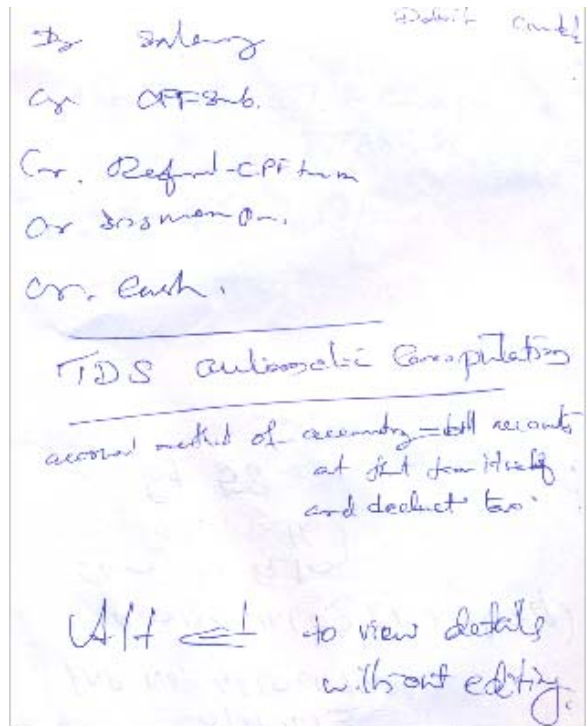 Debit Credit
Dr Salary
Cr CPF Sub.
Cr. Refund-CPF
Cr
Cr. Cash.
TDS automatic Computation
accrual method of accounting - bill
at first itself
and deduct tax.
Alt to view details
without editing.